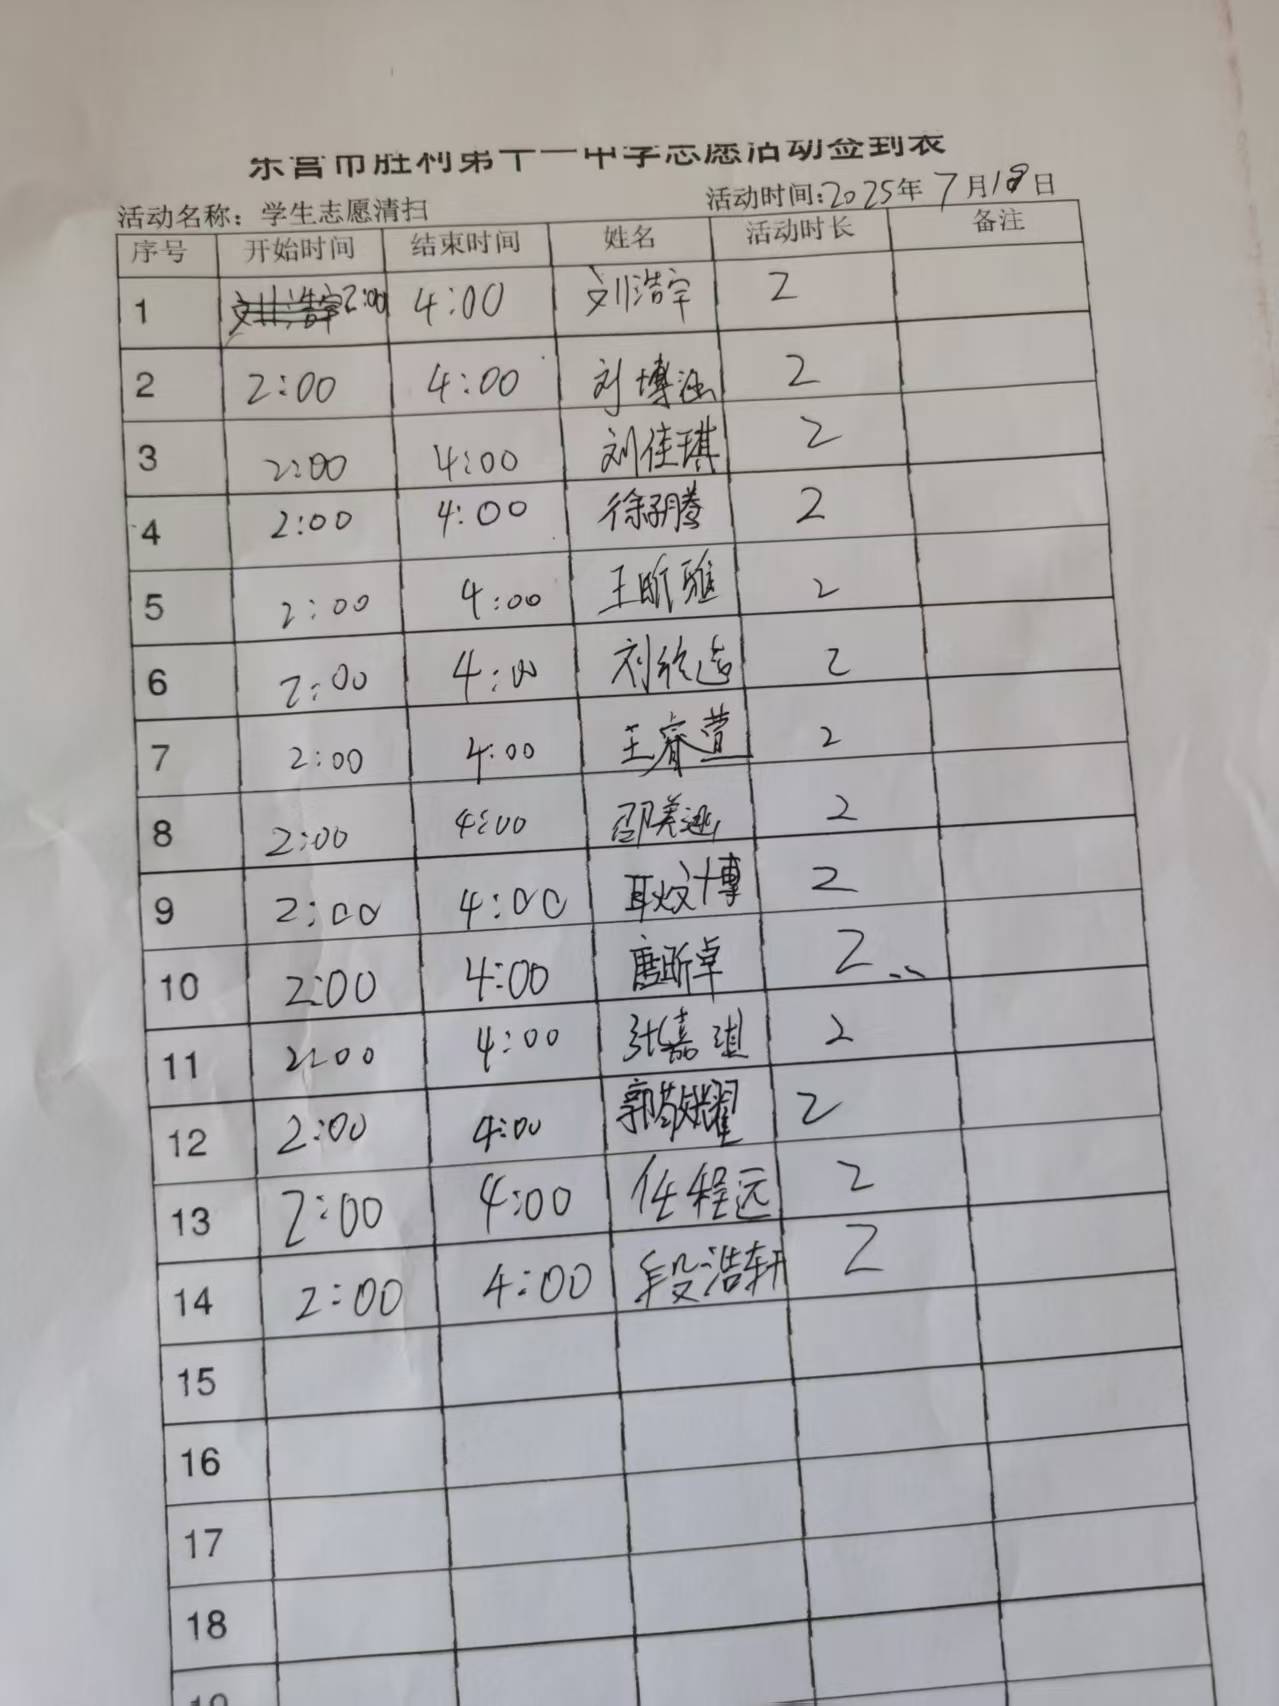 东营市胜利第十一中学志愿活动签到表
活动名称：学生志愿清扫 活动时间:2025年7月18日
序号 开始时间 结束时间 姓名 活动时长 备注
1 刘浩宇 2:00 4:00 刘浩宇 2
2 2:00 4:00 刘博涵 2
3 2:00 4:00 刘佳琪 2
4 2:00 4:00 徐子腾 2
5 2:00 4:00 王昕雅 2
6 2:00 4:00 刘 2
7 2:00 4:00 王睿萱 2
8 2:00 4:00 邵美涵 2
9 2:00 4:00 耿文博 2
10 2:00 4:00 唐昕卓 2
11 2:00 4:00 张嘉琪 2
12 2:00 4:00 郭 耀 2
13 2:00 4:00 任程远 2
14 2:00 4:00 段浩轩 2
15
16
17
18
19